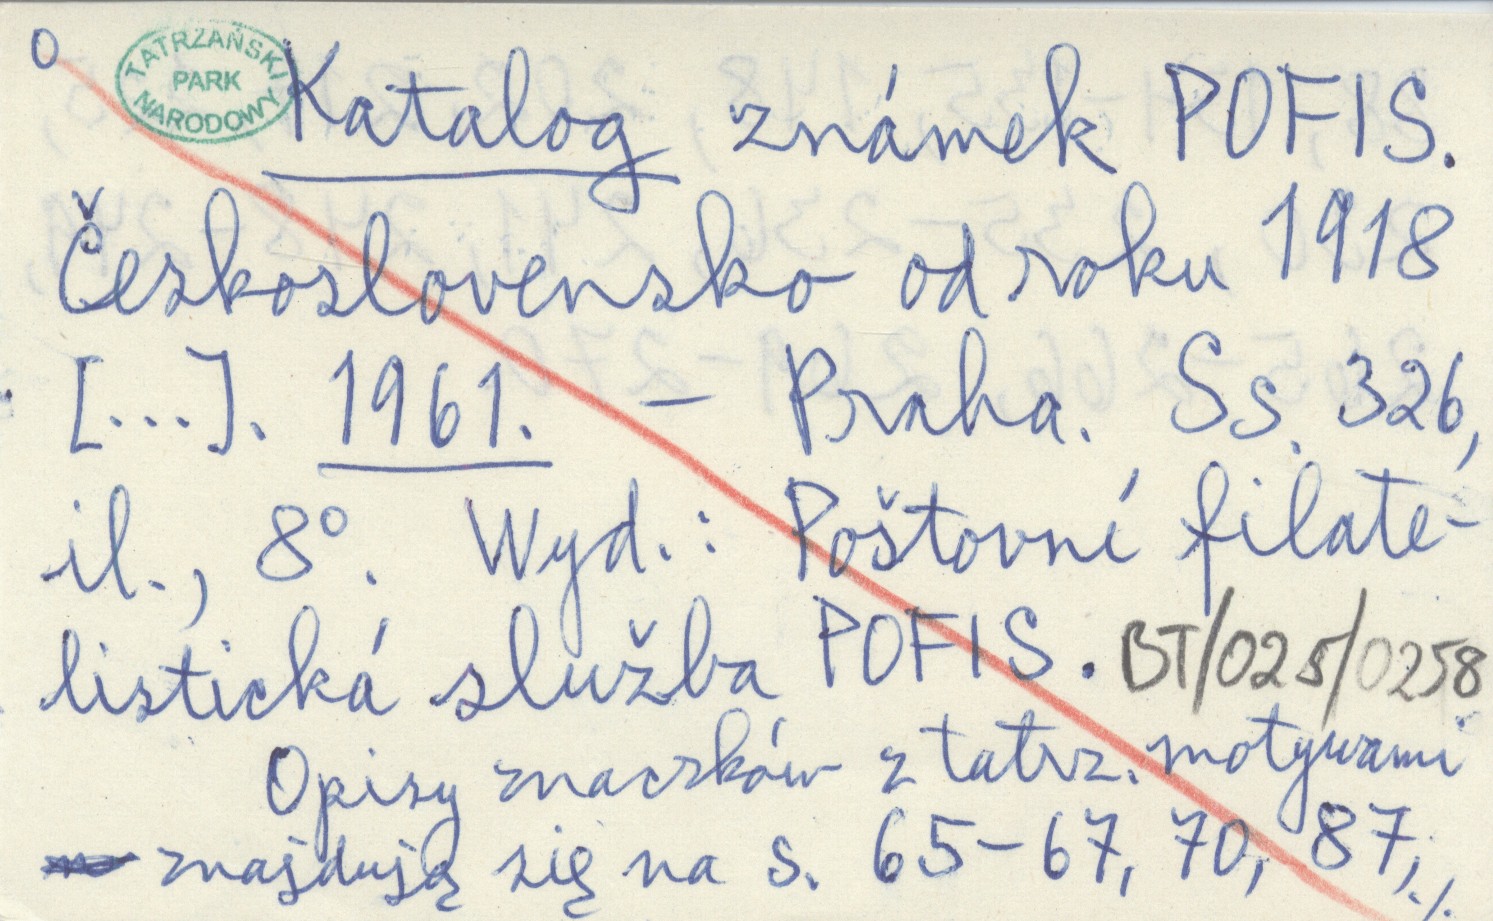 O
TATRZAŃSKI
PARK
NARODOWY
Katalog známek POFIS.
Československo od roku 1918
[...]. 1961. - Praha. Ss. 326,
il., 8°. Wyd.: Poštovní filate-
listická služba POFIS. BT/025/0258
Opisy znaczków z tatrz. motywami
znajdują się na s. 65-67, 70, 87, ./.